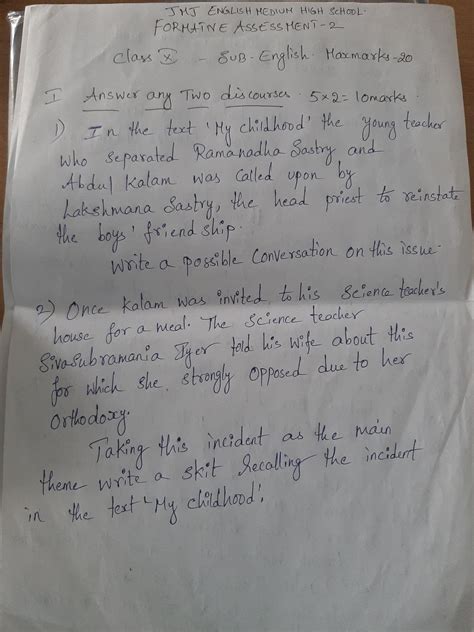 JMJ ENGLISH MEDIUM HIGH SCHOOL.
FORMATIVE ASSESSMENT-2
Class X - SUB - English. Maxmarks-20
I Answer any Two discourses. 5×2=10marks.
1) In the text 'My childhood' the young teacher
who separated Ramanadha Sastry and
Abdul Kalam was called upon by
Lakshmana Sastry, the head priest to reinstate
the boys' friend ship.
Write a possible Conversation on this issue.
2) Once Kalam was invited to his Science teacher's
house for a meal. The Science teacher
Sivasubramania Iyer told his wife about this
for which she strongly opposed due to her
Orthodoxy.
Taking this incident as the main
theme write a skit recalling the incident
in the text 'My childhood'.